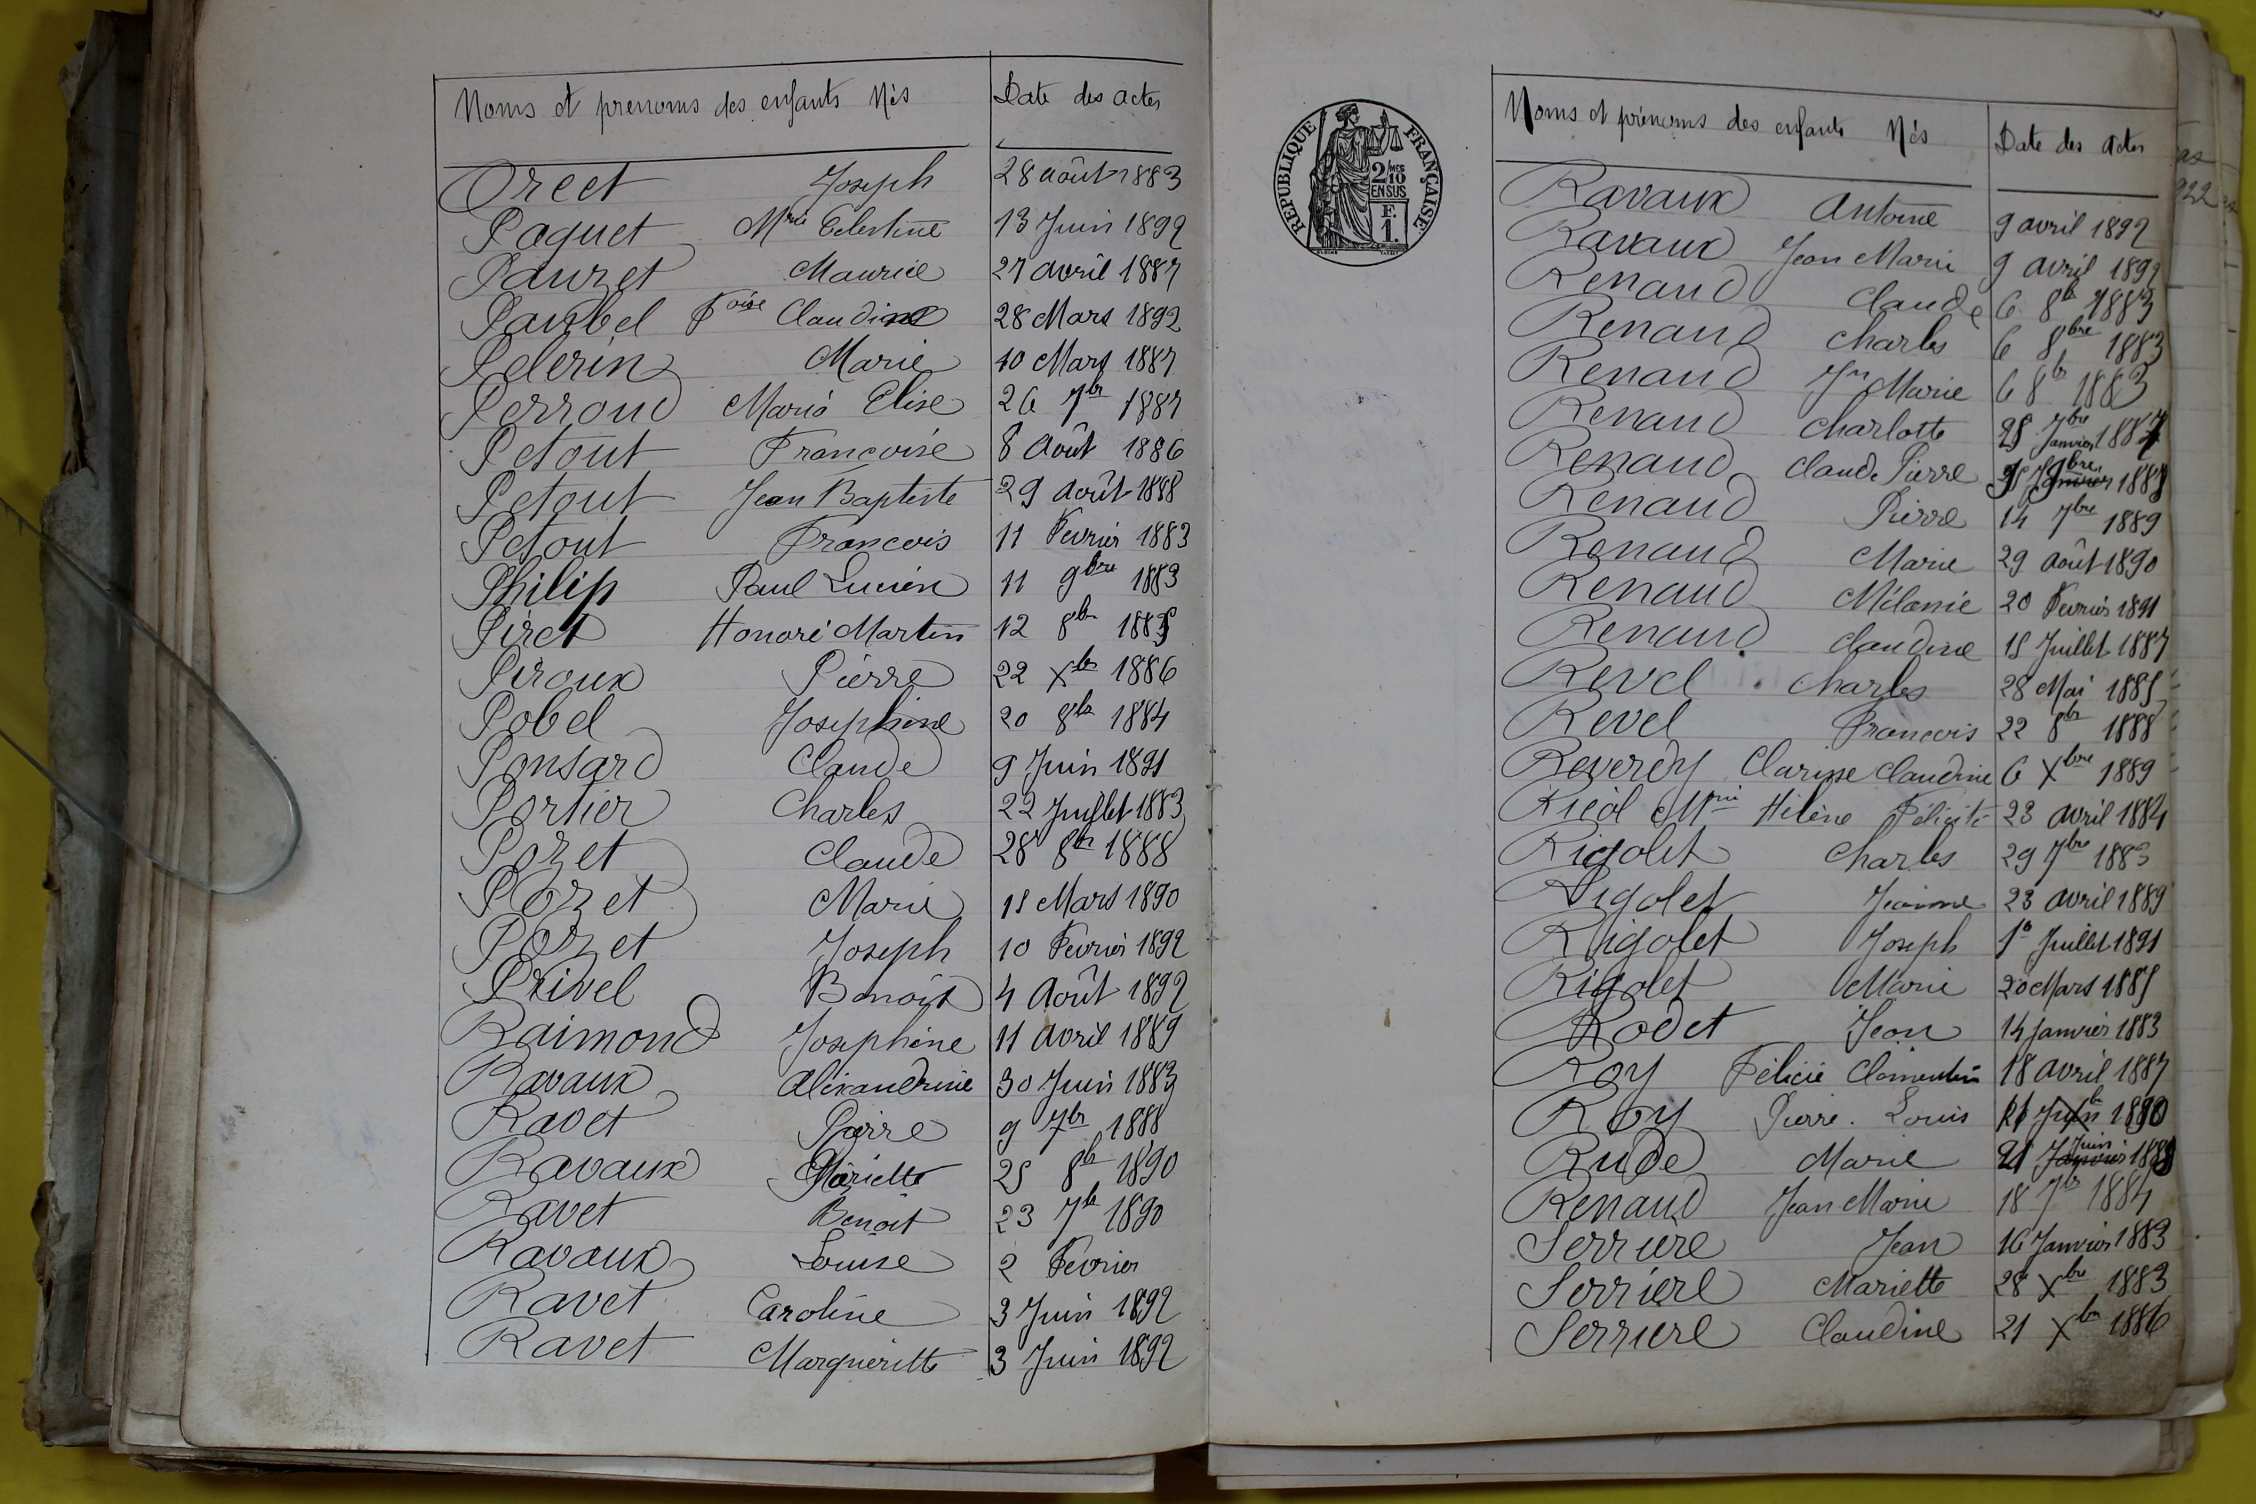 Noms et prenoms des enfants Nés Date des actes
Orcet Joseph 28 août 1883
Paquet Mrie Celestine 13 Juin 1892
Pauzet Maurice 27 avril 1887
Paubel Foise Claudine 28 Mars 1892
Pelerin Marie 10 Mars 1887
Perroud Marie Elise 26 7br 1887
Petout Francoise 8 Août 1886
Petout Jean Baptiste 29 août 1888
Petout Francois 11 Fevrier 1883
Philip Paul Lucien 11 9bre 1883
Piret Honoré Martin 12 8br
Piroux Pierre 22 Xbr 1886
Pobel Josephine 20 8br 1884
Ponsard Claude 9 Juin 1891
Portier Charles 22 Juillet 1883
Pozet Claude 28 8br 1888
Pozet Marie 15 Mars 1890
Pozet Joseph 10 Fevrier 1892
Privel Benoît 4 Août 1892
Raimond Josephine 11 avril 1889
Ravaux Alexandrine 30 Juin 1883
Ravet Pierre 9 7br 1888
Ravaux Mariette 25 8br 1890
Ravet Benoit 23 7br 1890
Ravaux Louise 2 Fevrier
Ravet Caroline 3 Juin 1892
Ravet Margueritte 3 Juin 1892
REPUBLIQUE FRANÇAISE
2/10 MES
EN SUS
F.
1.
Noms et prénoms des enfants Nés Date des actes
Ravaux Antoine 9 avril 1892
Ravaux Jean Marie 9 avril 1892
Renaud Claude 6 8b 1883
Renaud Charles 6 8bre 1883
Renaud Jn Marie 6 8br 1883
Renaud Charlotte 25 7bre Janvier 1887
Renaud Claude Pierre Janvier
Renaud Pierre 14 7bre 1889
Renaud Marie 29 août 1890
Renaud Mélanie 20 Fevrier 1891
Renaud Claudine 15 Juillet 1887
Revel Charles 28 Mai 1885
Revel Francois 22 8br 1888
Reverdy Clarisse Claudine 6 Xbre 1889
Ricol Mrie Hélène Félicité 23 avril 1884
Rigolet Charles 29 7bre 1883
Rigolet Jeanne 23 avril 1889
Rigolet Joseph 1o Juillet 1891
Rigolet Marie 20 Mars 1885
Rodet Jean 14 janvier 1883
Roy Félicie Clementin 18 avril 1887
Roy Pierre. Louis 1890
Rude Marie 21 Juin Janvier
Renaud Jean Marie 18 7br 1884
Serriere Jean 16 Janvier 1883
Serriere Mariette 28 Xbre 1883
Serriere Claudine 21 Xbre 1886